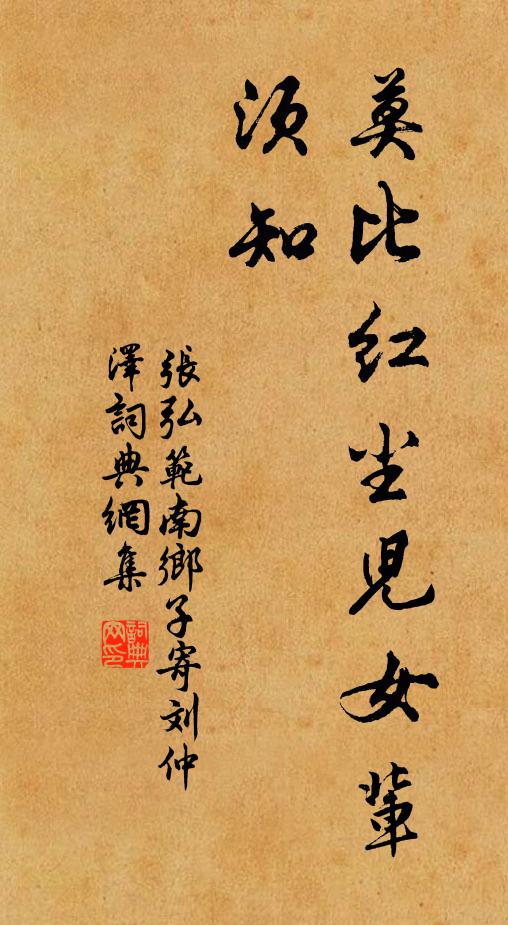 莫比红尘兒女輩
须知
張弘範南鄉子寄刘仲
澤詞典網集
詞典
网印